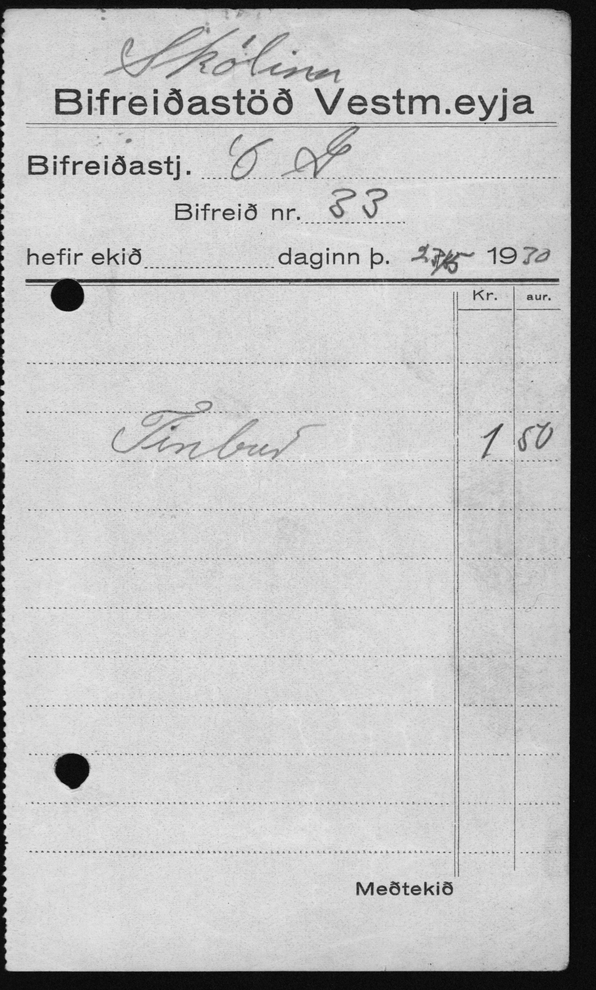 Skólinn
Bifreiðastöð Vestm.eyja
Bifreiðastj.
Bifreið nr. 33
hefir ekið daginn þ. 23/5 1930
Kr. aur.
1 50
Meðtekið